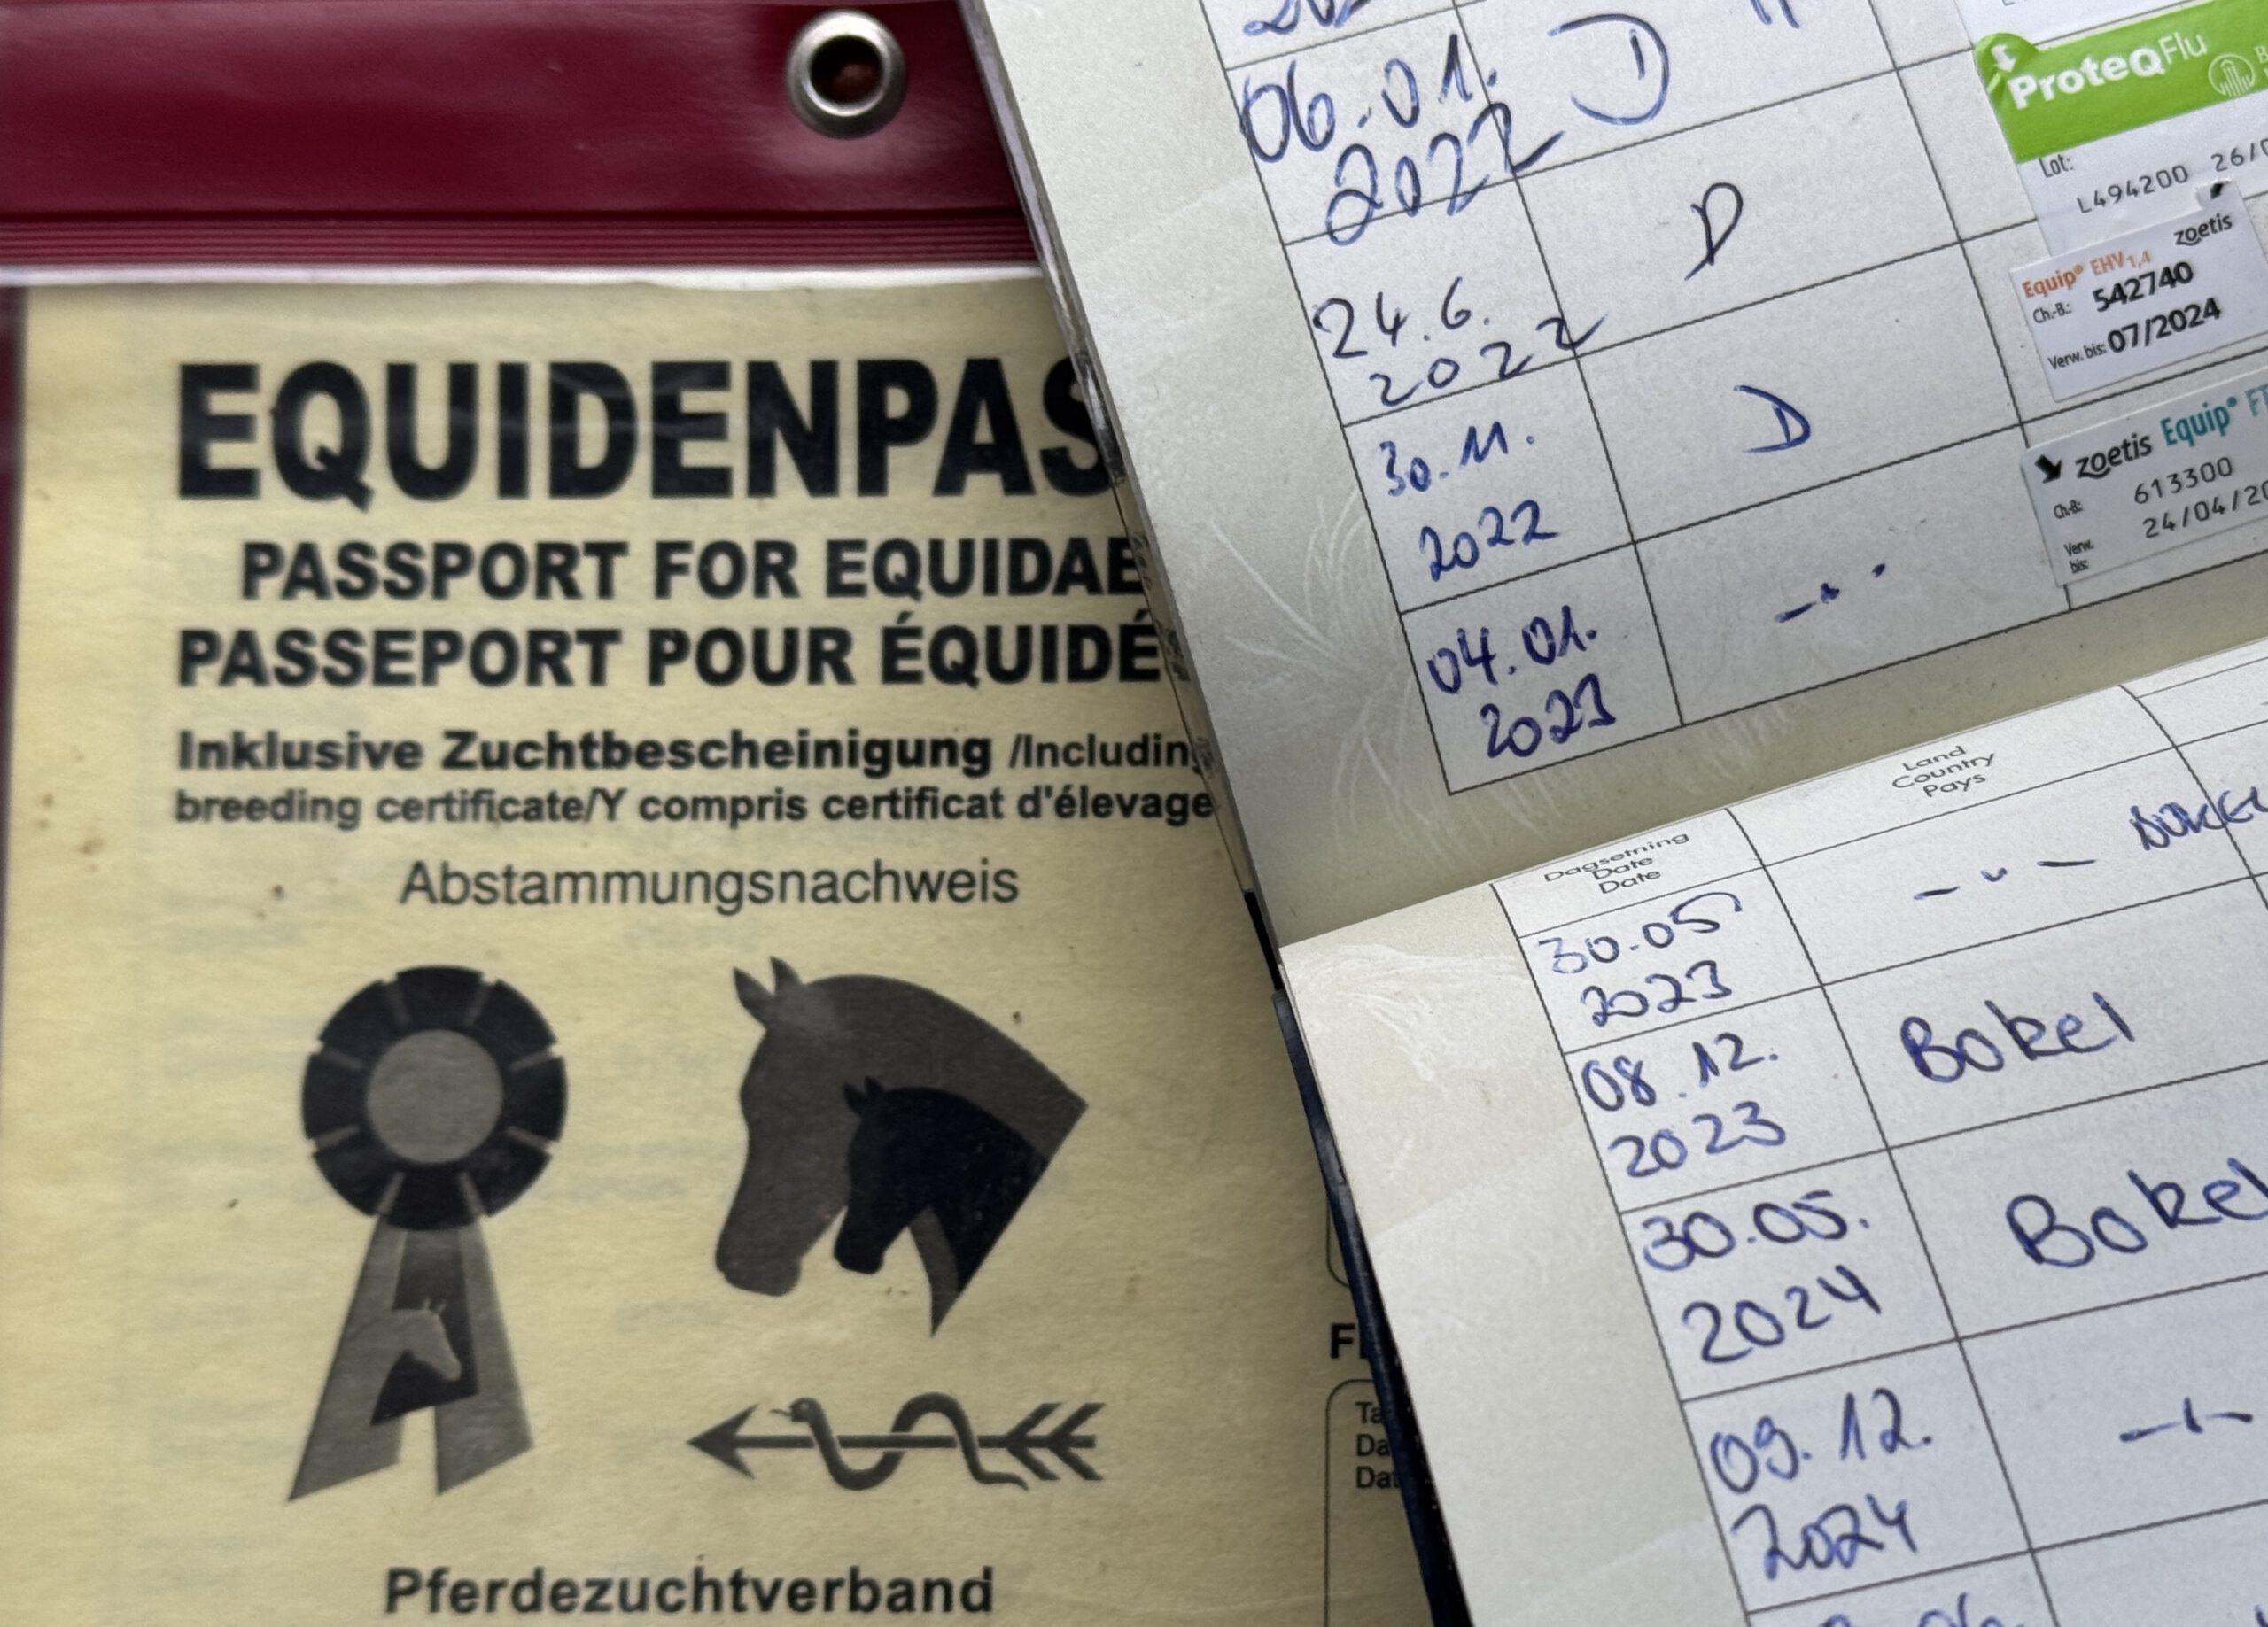 EQUIDENPAS
PASSPORT FOR EQUIDAE
PASSEPORT POUR ÉQUIDÉ
Inklusive Zuchtbescheinigung /Including
breeding certificate/Y compris certificat d'élevage
Abstammungsnachweis
Pferdezuchtverband
06.01.
2022
D
ProteqFlu
Lot:
L494200 26/0
24.6.
2022
D
Equip® EHV1,4 zoetis
Ch.-B.: 542740
Verw. bis: 07/2024
30.11.
2022
D
zoetis Equip® FT
Ch.-B.: 613300
24/04/20
Verw.
bis:
04.01.
2023
Dagsetning
Date
Date
Land
Country
Pays
30.05
2023
08.12.
2023
Bokel
30.05.
2024
Bokel
09.12.
2024
Ta
Da
Dat